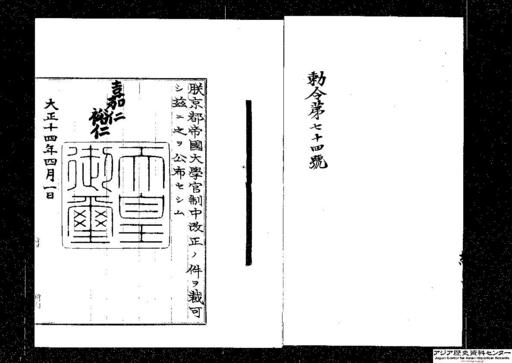 勅令第七十四號
朕京都帝國大學官制中改正ノ件ヲ裁可
シ茲ニ之ヲ公布セシム
嘉仁
裕仁
天皇
御璽
大正十四年四月一日
アジア歴史資料センター
Japan Center for Asian Historical Records